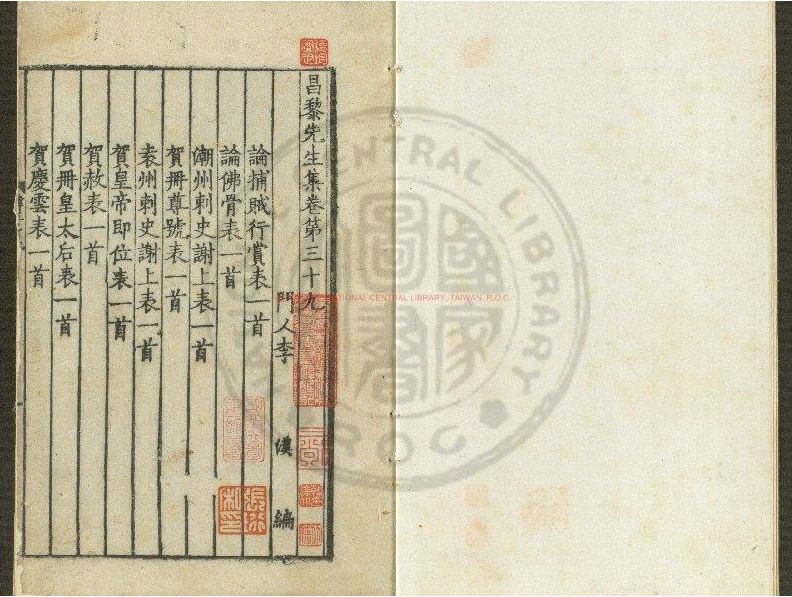 昌黎先生集卷第三十九
門人李 漢 編
論捕賊行賞表一首
論佛骨表一首
潮州刺史謝上表一首
賀冊尊號表一首
袁州刺史謝上表一首
賀皇帝即位表一首
賀赦表一首
賀冊皇太后表一首
賀慶雲表一首
NATIONAL CENTRAL LIBRARY, TAIWAN, R.O.C
CENTRAL LIBRARY
R.O.C
國家圖書